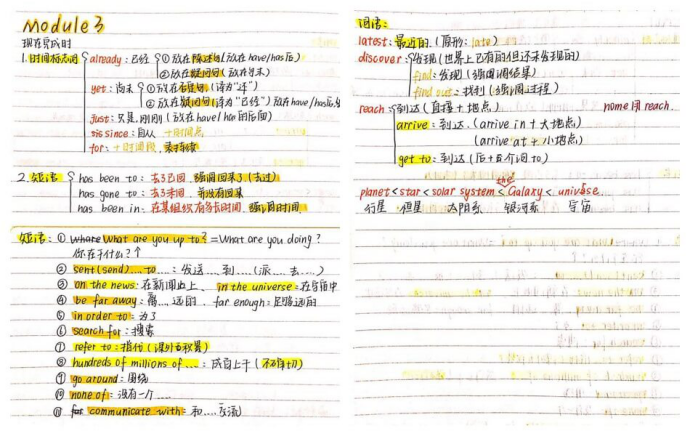 Module 3
现在完成时
1.时间标志词 already: 已经 ①放在陈述句(放在have/has后)
②放在疑问句(放在句末)
yet: 尚未 ①放在否定句(译为"还")
②放在疑问句(译为"已经")放在have/has后
just: 只是,刚刚(放在have/has的后面)
since: 自从 +时间点
for: +时间段,表持续
2.短语 has been to: 去了已回,强调回来了(去过)
has gone to: 去了未回,并没有回来
has been in: 在某组织有多长时间,强调时间
短语: ① where What are you up to? = What are you doing?
你在干什么?
② sent (send) .... to ....: 发送....到....(派....去....)
③ on the news: 在新闻上、in the universe: 在宇宙中
④ be far away: 离....远的. far enough: 足够远的
⑤ in order to: 为了
⑥ search for: 搜索
⑦ refer to: 指代(课外要积累)
⑧ hundreds of millions of ...: 成百上千(不确切)
⑨ go around: 围绕
⑩ none of: 没有一个....
⑪ communicate with: 和....交流
词语:
latest: 最近的.(原形: late)
discover: 发现(世界上已有的但还未发现的)
find: 发现(强调结果)
find out: 找到(强调过程)
reach: 到达(直接+地点) home用reach.
arrive: 到达.(arrive in + 大地点)
(arrive at + 小地点)
get to: 到达(后+介词to)
planet < star < solar system < the Galaxy < universe
行星 恒星 太阳系 银河系 宇宙